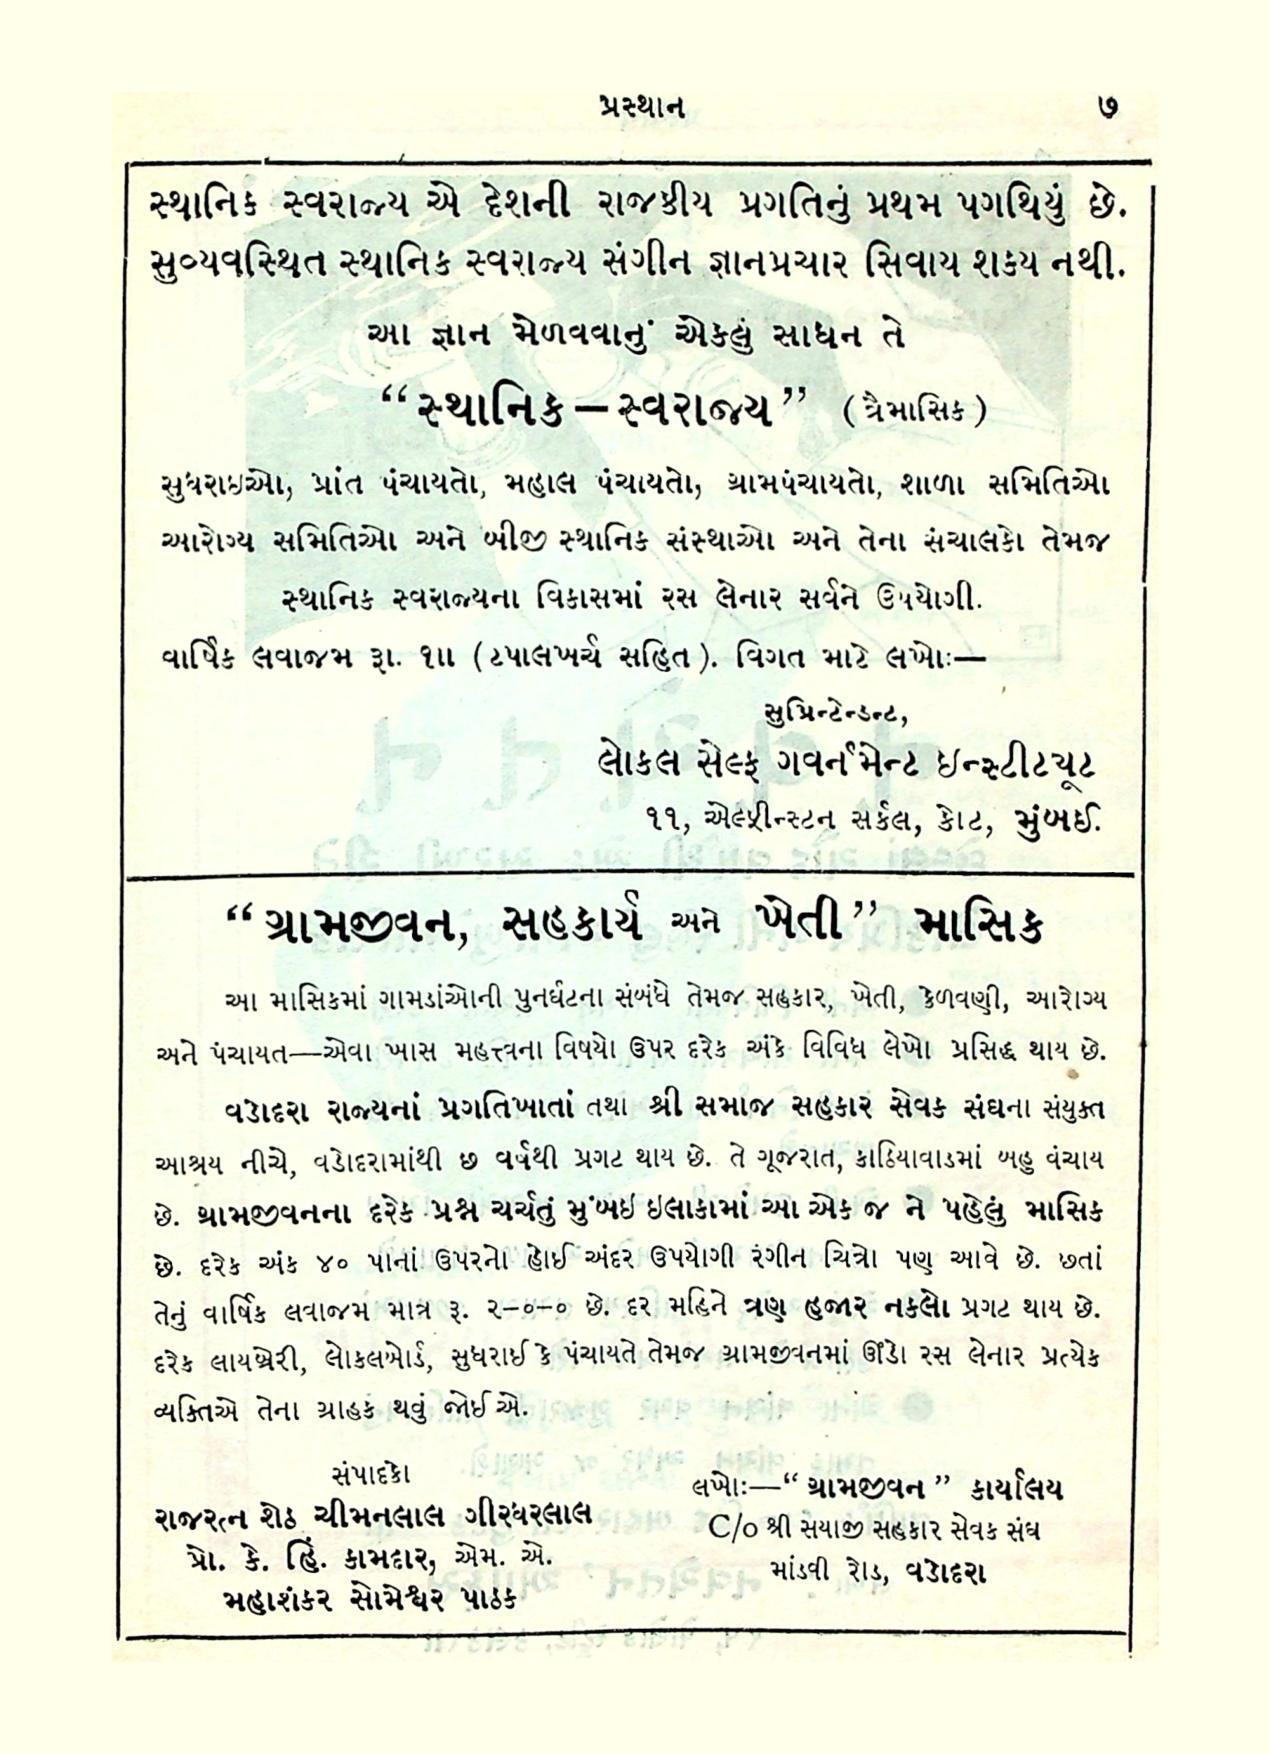 પ્રસ્થાન ૭
સ્થાનિક સ્વરાજ્ય એ દેશની રાજકીય પ્રગતિનું પ્રથમ પગથિયું છે.
સુવ્યવસ્થિત સ્થાનિક સ્વરાજ્ય સંગીન જ્ઞાનપ્રચાર સિવાય શકય નથી.
આ જ્ઞાન મેળવવાનું એકલું સાધન તે
“સ્થાનિક—સ્વરાજ્ય” (ત્રૈમાસિક)
સુધરાઇઓ, પ્રાંત પંચાયતો, મહાલ પંચાયતો, ગ્રામપંચાયતો, શાળા સમિતિઓ
આરોગ્ય સમિતિઓ અને બીજી સ્થાનિક સંસ્થાઓ અને તેના સંચાલકો તેમજ
સ્થાનિક સ્વરાજ્યના વિકાસમાં રસ લેનાર સર્વને ઉપયોગી.
વાર્ષિક લવાજમ રૂા. ૧૫ (ટપાલખર્ચ સહિત). વિગત માટે લખોઃ—
સુપ્રિન્ટેન્ડન્ટ,
લોકલ સેલ્ફ ગવર્નમેન્ટ ઇન્સ્ટીટયૂટ
૧૧, એલ્ફીન્સ્ટન સર્કલ, કોટ, મુંબઈ.
“ગ્રામજીવન, સહકાર્ય અને ખેતી” માસિક
આ માસિકમાં ગામડાંઓની પુનર્ઘટના સંબંધે તેમજ સહકાર, ખેતી, કેળવણી, આરોગ્ય
અને પંચાયત—એવા ખાસ મહત્ત્વના વિષયો ઉપર દરેક અંકે વિવિધ લેખો પ્રસિદ્ધ થાય છે.
વડોદરા રાજ્યનાં પ્રગતિખાતાં તથા શ્રી સમાજ સહકાર સેવક સંઘના સંયુક્ત
આશ્રય નીચે, વડોદરામાંથી છ વર્ષથી પ્રગટ થાય છે. તે ગૂજરાત, કાઠિયાવાડમાં બહુ વંચાય
છે. ગ્રામજીવનના દરેક પ્રશ્ન ચર્ચતું મુંબઇ ઇલાકામાં આ એક જ ને પહેલું માસિક
છે. દરેક અંક ૪૦ પાનાં ઉપરનો હોઈ અંદર ઉપયોગી રંગીન ચિત્રો પણ આવે છે. છતાં
તેનું વાર્ષિક લવાજમ માત્ર રૂ. ૨-૦-૦ છે. દર મહિને ત્રણ હજાર નકલો પ્રગટ થાય છે.
દરેક લાયબ્રેરી, લોકલબોર્ડ, સુધરાઈ કે પંચાયતે તેમજ ગ્રામજીવનમાં ઊંડો રસ લેનાર પ્રત્યેક
વ્યક્તિએ તેના ગ્રાહક થવું જોઈ એ.
સંપાદકો
રાજરત્ન શેઠ ચીમનલાલ ગીરધરલાલ
પ્રો. કે. હિં. કામદાર, એમ. એ.
મહાશંકર સોમેશ્વર પાઠક
લખોઃ—“ગ્રામજીવન” કાર્યાલય
C/o શ્રી સયાજી સહકાર સેવક સંઘ
માંડવી રોડ, વડોદરા